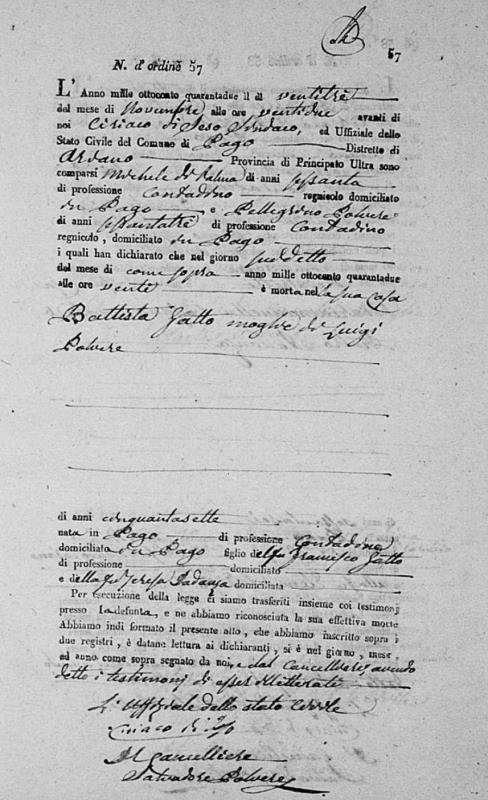 57
N. d'ordine 57
L'Anno mille ottocento quarantadue il di ventitrè
del mese di Novembre alle ore ventidue avanti di
noi Ciriaco di Jeso Sindaco, ed Uffiziale dello
Stato Civile del Comune di Pago Distretto di
Ariano Provincia di Principato Ultra sono
comparsi Michele di Palma di anni sessanta
di professione Contadino regnicolo domiciliato
in Pago e Pellegrino Polvere
di anni sessantatre di professione Contadino
regnicolo, domiciliato in Pago
i quali han dichiarato che nel giorno suddetto
del mese di come sopra anno mille ottocento quarantadue
alle ore venti è morta nella sua casa
Battista Gatto moglie di Luigi
Polvere
di anni cinquantasette
nata in Pago di professione Contadina
domiciliata in Pago figlio del fu Francisco Gatto
di professione domiciliato
e della fu Teresa domiciliata
Per esecuzione della legge ci siamo trasferiti insieme coi testimonj
presso la defunta, e ne abbiamo riconosciuta la sua effettiva morte
Abbiamo indi formato il presente atto, che abbiamo inscritto sopra i
due registri, è datane lettura ai dichiaranti, si è nel giorno, mese
ed anno come sopra segnato da noi, e dal Cancelliere avendo
detto i testimonj di esser illetterati
L'Uffiziale dello stato Civile
Ciriaco di Jeso
Il Cancelliere
Salvadore Polvere